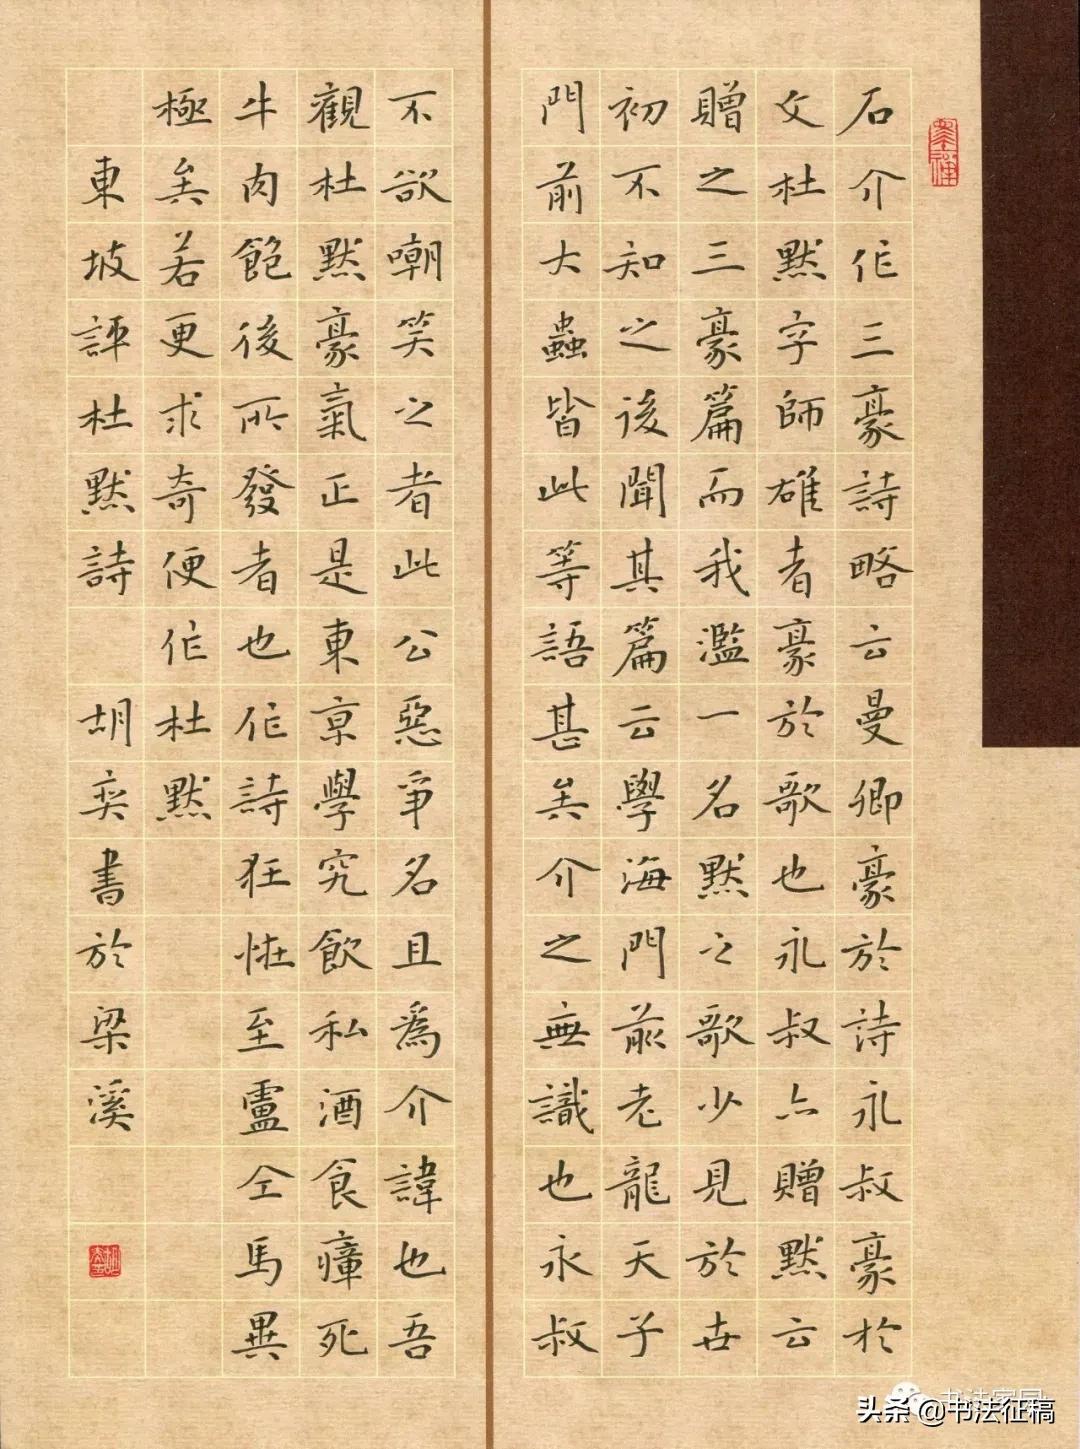 石介作三豪詩略云曼卿豪於詩永叔豪於
文杜默字師雄者豪於歌也永叔亦贈默云
贈之三豪篇而我濫一名默之歌少見於世
初不知之後聞其篇云學海門前老龍天子
門前大蟲皆此等語甚矣介之無識也永叔
不欲嘲笑之者此公惡爭名且為介諱也吾
觀杜默豪氣正是東京學究飲私酒食瘴死
牛肉飽後所發者也作詩狂怪至盧仝馬異
極矣若更求奇便作杜默
東坡評杜默詩 胡奕書於梁溪
头条 @书法征稿